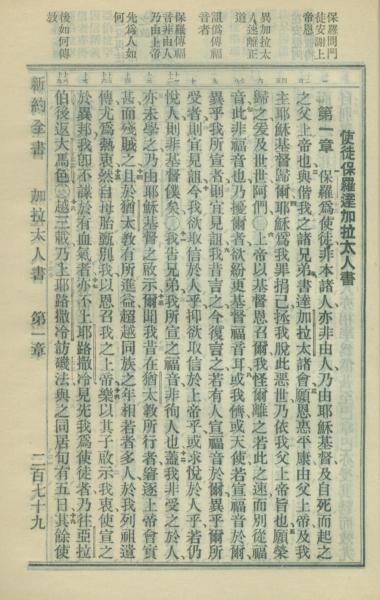 保羅問門
徒安謝上
帝恩
異加拉太
人速離正
道
詛僞傳福
音者
保羅傳福
音非由人
乃由上帝
先爲人如
何
後如何傳
教
使徒保羅達加拉太人書
第一章 保羅爲使徒非本諸人亦非由人乃由耶穌基督及自死而起之
之父上帝也與偕我之諸兄弟書達加拉太諸會願恩惠平康由父上帝及我
主耶穌基督歸爾耶穌爲我罪捐己拯我脫此惡世乃依我父上帝旨也願榮
歸之爰及世世阿們○上帝以基督恩召爾我怪爾離之若此之速而別從福
音此非福音也乃擾爾者欲紛更基督福音耳或我儕或天使若宣福音於爾
異乎我所宣者則宜見詛我昔言之今復言之若有人宣福音於爾異乎爾所
受者則宜見詛今我欲取信於人乎抑欲取信於上帝乎或求悅於人乎若仍
悅人則非基督僕矣○我告兄弟我所宣之福音非徇人也蓋我非受之於人
亦未學之乃由耶穌基督之啟示爾聞我昔在猶太教所行者窘逐上帝會實
甚而殘賊之且於猶太教有所進益超越同族之年相若者多人於我列祖遺
傳尤爲熱衷然自母胎甄別我以恩召我之上帝樂以其子啟示我衷使宣之
於異邦我卽不謀於有血氣者亦不上耶路撒冷見先我爲使徒者乃往亞拉
伯後返大馬色○越三載乃上耶路撒冷訪磯法與之同居旬有五日其餘使
新約全書 加拉太人書 第一章 二百七十九